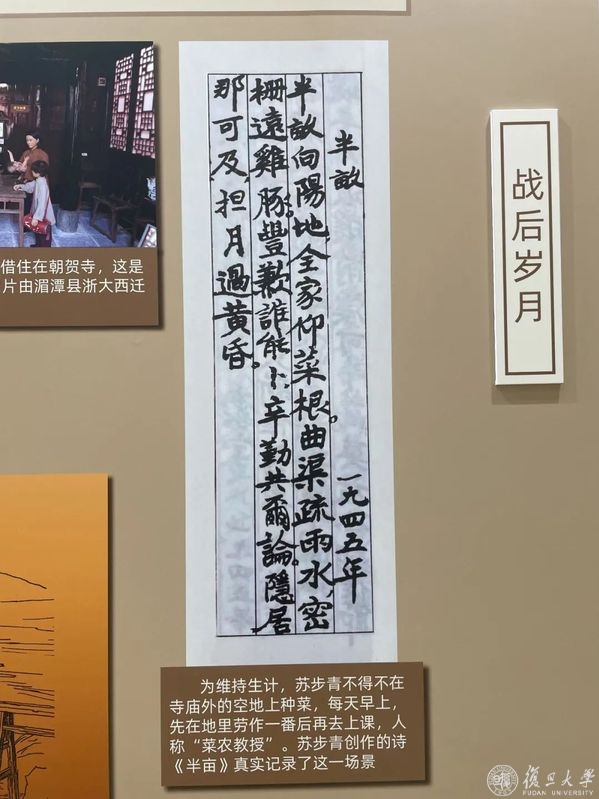 借住在朝贺寺，这是
片由湄潭县浙大西迁
半畝
一九四五年
半畝向陽地，全家仰菜根。曲渠疏雨水，密
柵遠雞豚。豐歉誰能卜，辛勤共爾論。隱居
那可及，担月過黄昏。
战后岁月
为维持生计，苏步青不得不在
寺庙外的空地上种菜，每天早上，
先在地里劳作一番后再去上课，人
称“菜农教授”。苏步青创作的诗
《半亩》真实记录了这一场景
復旦大學
FUDAN UNIVERSITY